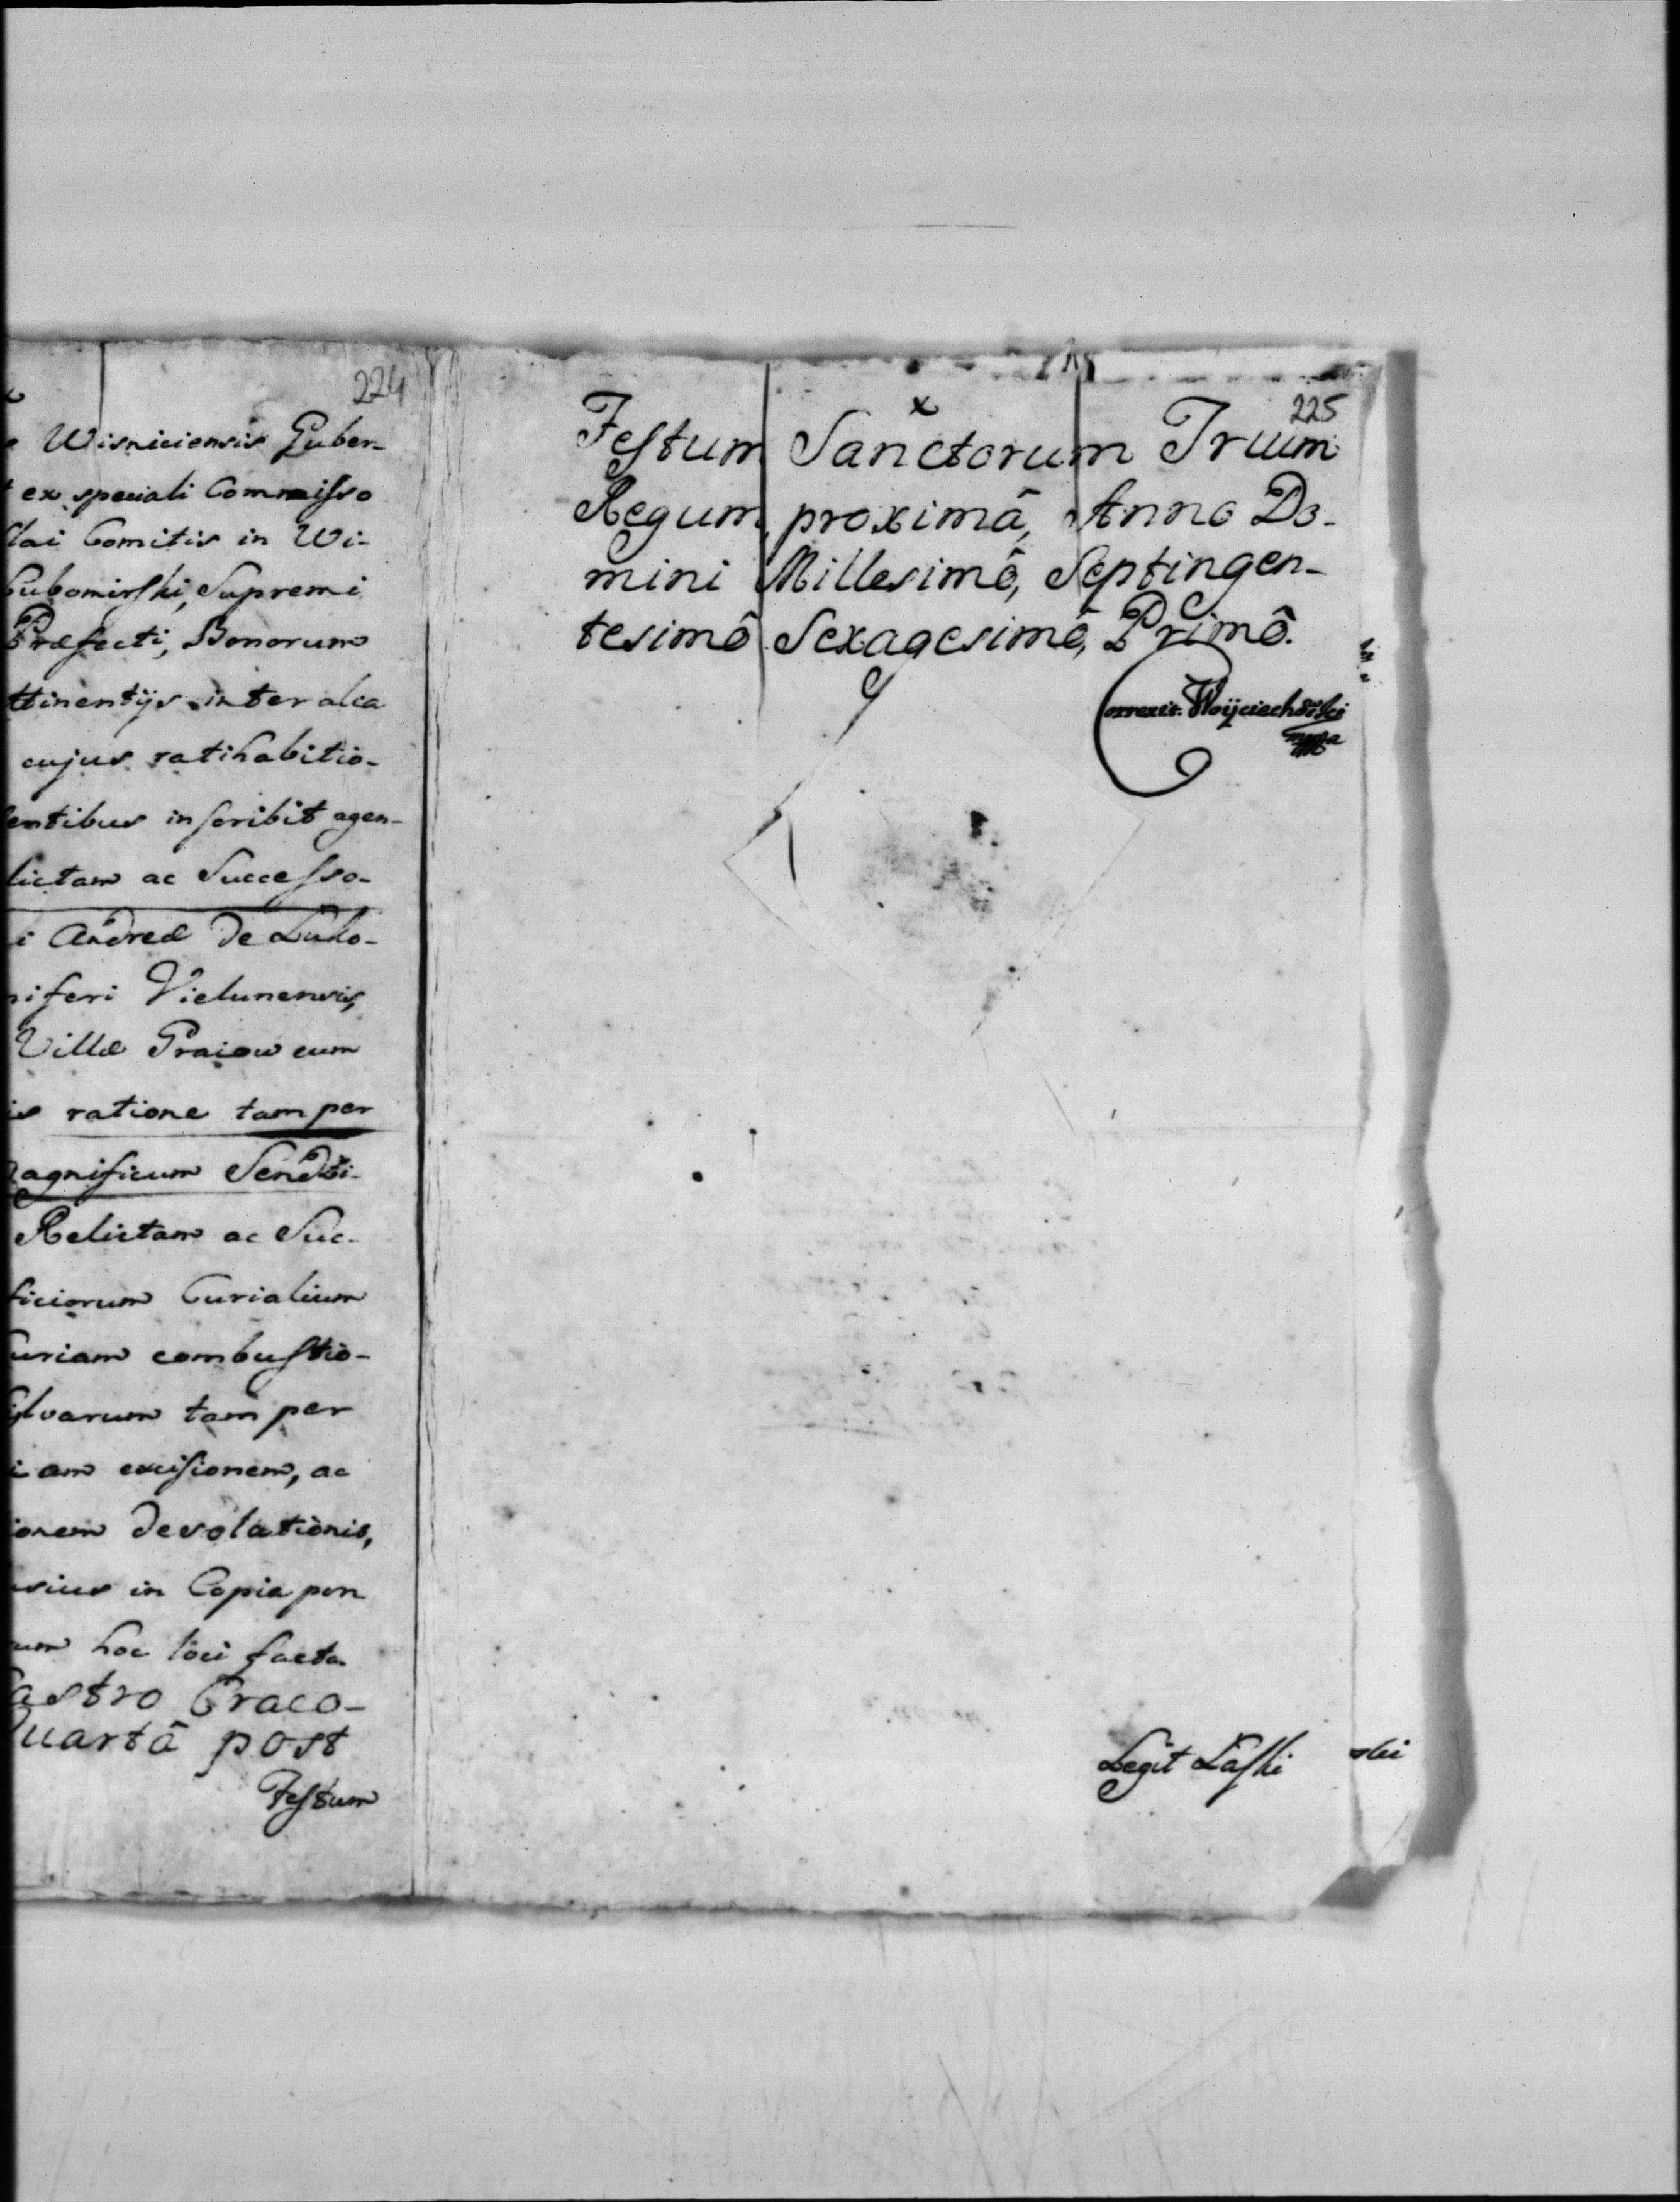 224
Wisniciensis Guber-
ex speciali Commisso
Comitis in Wi-
Lubomirski, Supremi
Præfecti, Bonorum
ttinentijs inter alia
cujus ratihabitiô-
entibus inscribit agen-
lictam ac Successo-
i Andreæ de Lubo-
niferi Vielunensis,
Villæ Graiow cum
is ratione tam per
agnificum Sendzi-
Relictam ac Suc-
ficiorum Curialium
uriam combustiô-
ylvarum tam per
iam excisionem, ac
ionem desolatiònis,
usius in Copia pen
um hoc loci facta
astro Craco-
uartâ post
Festum
225
x
Festum Sanctorum Trium
Regum, proximâ, Anno Do-
mini Millesimô, Septingen-
tesimô Sexagesimô, Primô.
Correxit. Woijciechowski
mppa
Legit Laski
ski